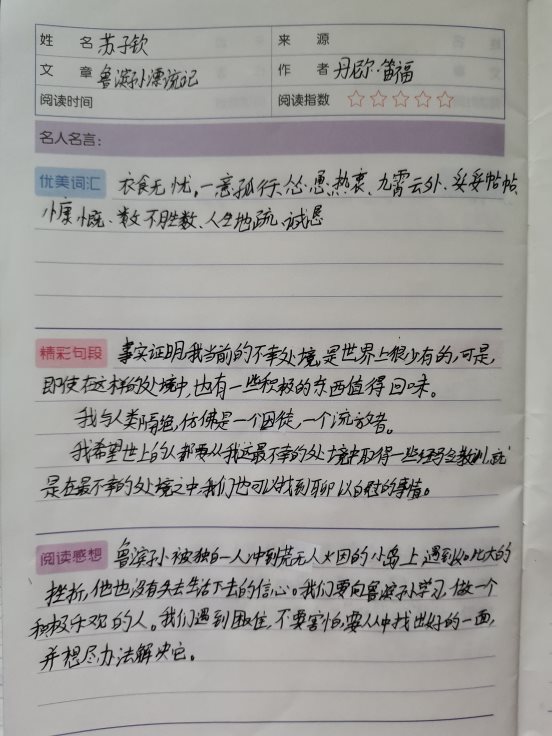 姓 名 苏子钦 来 源
文 章 鲁滨孙漂流记 作 者 丹尼尔·笛福
阅读时间 阅读指数 ☆☆☆☆☆
名人名言:
优美词汇 衣食无忧、一意孤行、怂恿、热衷、九霄云外、妥妥帖帖、
慷慨、数不胜数、人生地疏、诚恳
精彩句段 事实证明,我当前的不幸处境,是世界上很少有的,可是,
即使在这样的处境中,也有一些积极的东西值得回味。
我与人类隔绝,仿佛是一个囚徒,一个流放者。
我希望世上的人都要从我这最不幸的处境中取得一些经验教训,就
是在最不幸的处境之中,我们也可以找到聊以自慰的事情。
阅读感想 鲁滨孙被独自一人冲到荒无人烟的小岛上,遇到如此大的
挫折,他也没有失去生活下去的信心。我们要向鲁滨孙学习,做一个
积极乐观的人。我们遇到困难,不要害怕,要从中找出好的一面,
并想尽办法解决它。